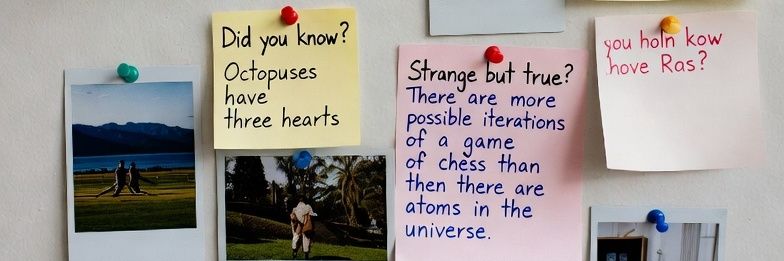 Did you know?
Octopuses
have
three hearts
Strange but true?
There are more
possible iterations
of a game
of chess than
then there are
atoms in the
universe.
you holn kow
hove Ras?